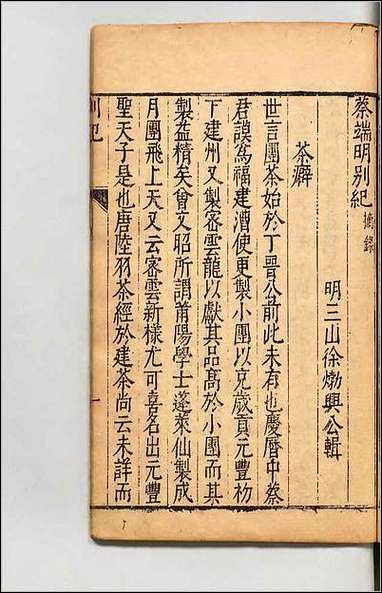 蔡端明別紀 摘錄
明三山徐𤊹興公輯
茶癖
世言團茶始於丁晉公前此未有也慶曆中蔡
君謨為福建漕使更製小團以充歲貢元豐初
下建州又製密雲龍以獻其品高於小團而其
製益精矣曾文昭所謂莆陽學士蓬萊仙製成
月團飛上天又云密雲新樣尤可喜名出元豐
聖天子是也唐陸羽茶經於建茶尚云未詳而
別紀
一